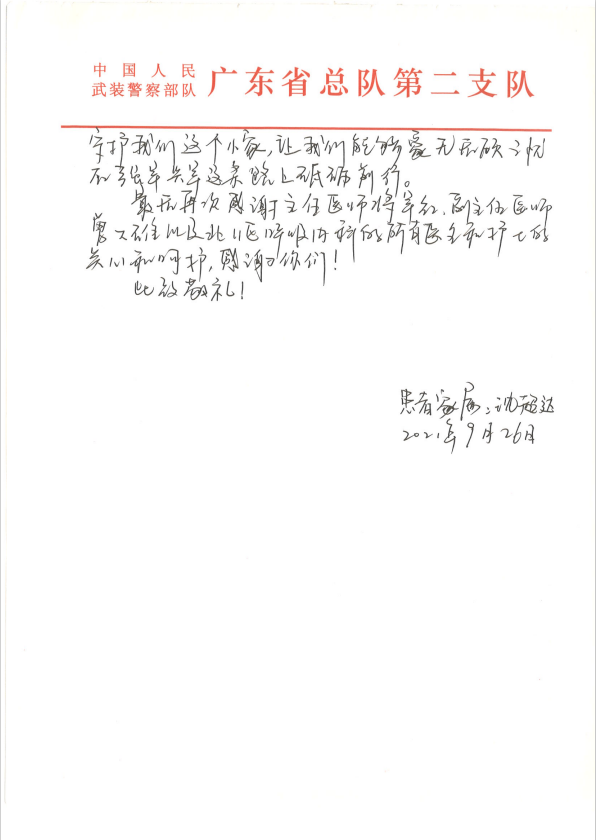 中国人民
武装警察部队 广东省总队第二支队
守护我们这个小家,让我们能够毫无后顾之忧
在强军兴军这条路上砥砺前行。
最后再次感谢主任医师蒋军红、副主任医师
曾大雄以及北区呼吸内科的所有医生和护士的
关心和呵护,感谢你们!
此致敬礼!
患者家属:沈超达
2021年9月26日